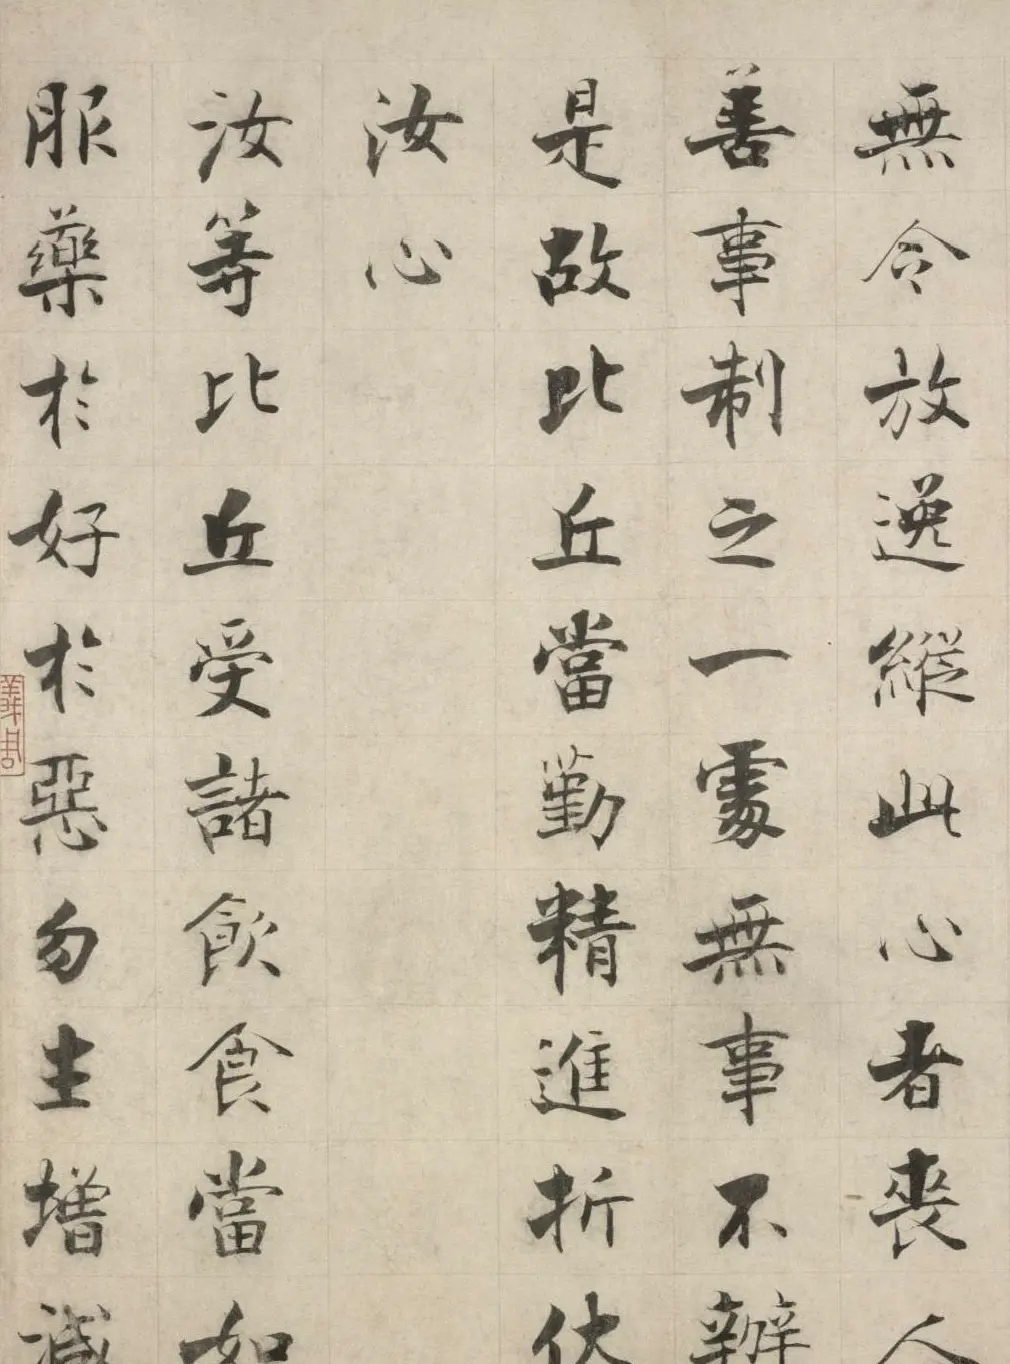 無令放逸縱此心者喪人
善事制之一處無事不辦
是故比丘當勤精進折伏
汝心
汝等比丘受諸飲食當如
服藥於好於惡勿生增減